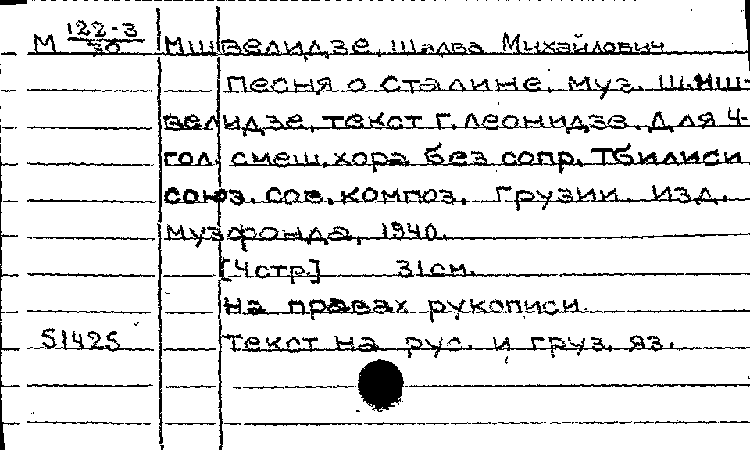 М 122-3/30 Мшвелидзе, Шалва Михайлович
Песня о Сталине. Муз. Ш.Мш-
велидзе, текст Г.Леонидзе. Для 4-
гол. смеш. хора без сопр. Тбилиси
союз. сов. композ. Грузии. Изд.
Музфонда, 1940.
[4 стр.] 31 см.
На правах рукописи.
51425 Текст на рус. и груз. яз.